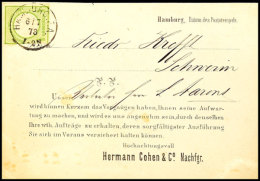 HAMBURG
6/7
78
1-2N
Hamburg, Datum des Poststempels.
Schwerin
P. P.
Unser
wird binnen Kurzem das Vergnügen haben, Ihnen seine Aufwar-
tung zu machen, und wird es uns angenehm sein, durch denselben
Ihre wth. Aufträge zu erhalten, deren sorgfältigster Ausführung
Sie sich im Voraus versichert halten können.
Hochachtungsvoll
Hermann Cohen & Co. Nachfgr.